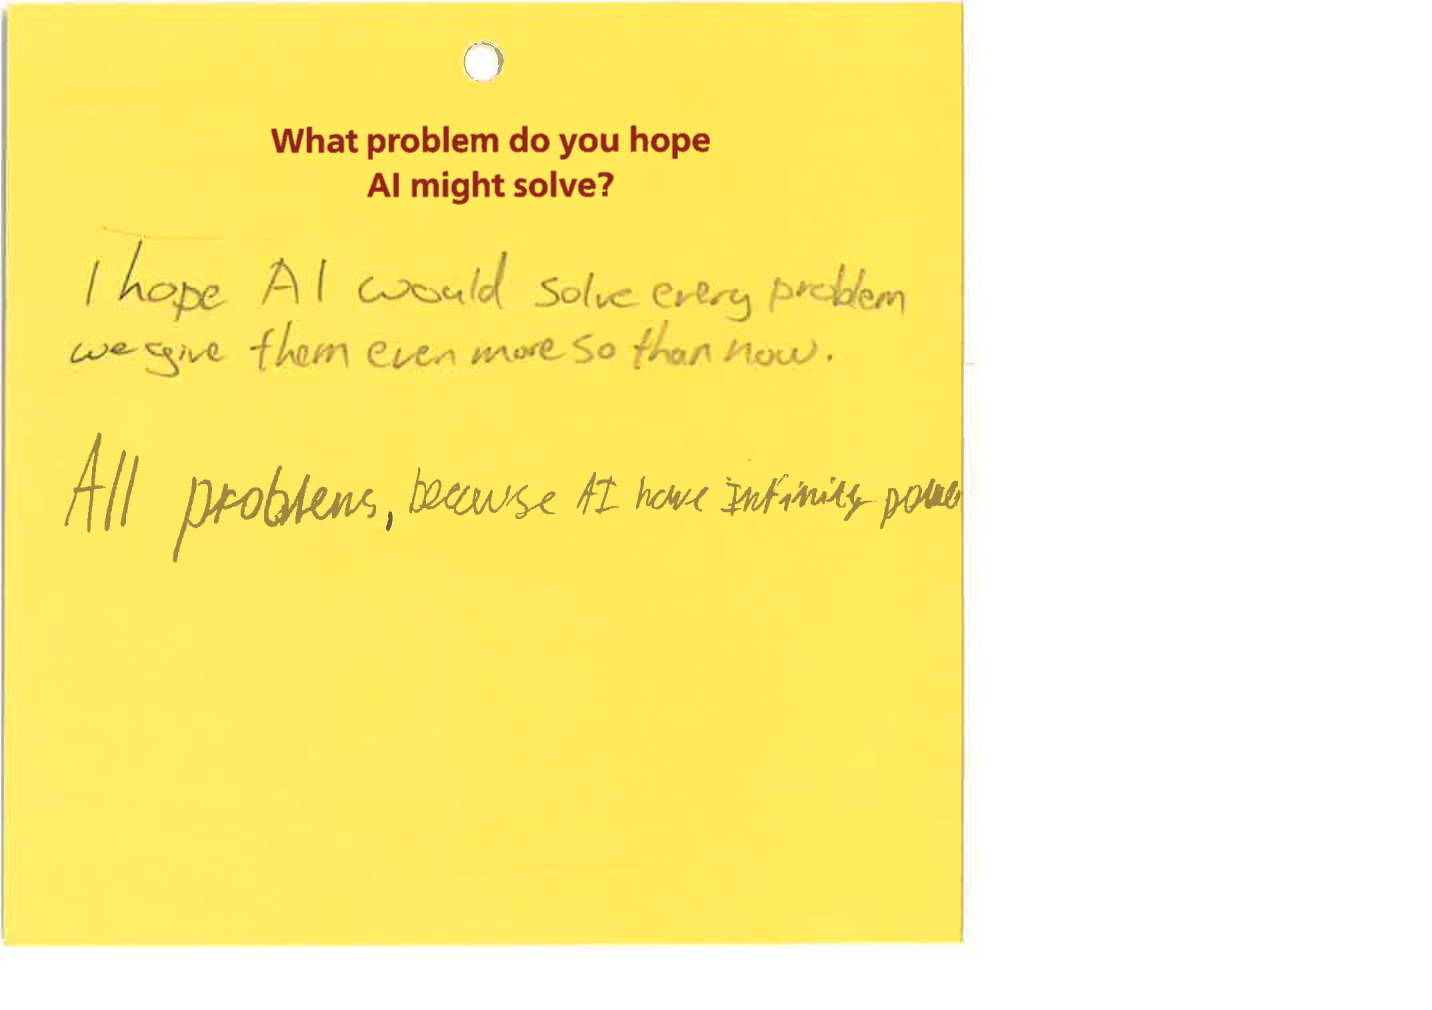 What problem do you hope
AI might solve?
I hope AI would solve every problem
we give them even more so than now.
All problems, because AI have Infinity power